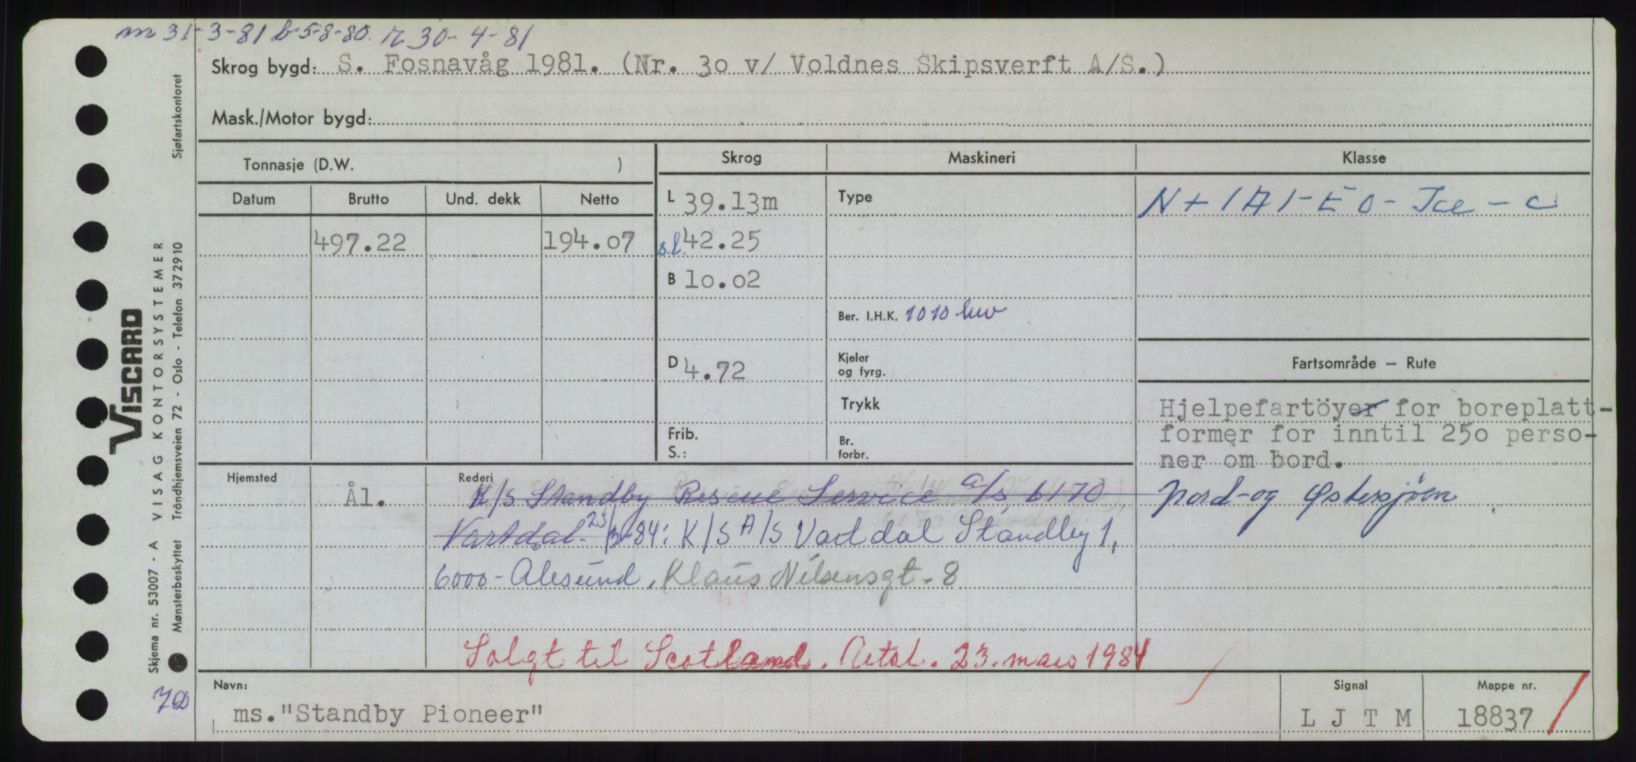 m 31-3-81 b-5-8-80. r 30-4-81
Skrog bygd: S. Fosnavåg 1981. (Nr. 3o v/ Voldnes Skipsverft A/S.)
Mask./Motor bygd:
Tonnasje (D.W. )
Datum Brutto Und. dekk Netto
497.22 194.o7
Skrog
L 39.13m
s.l. 42.25
B 1o.o2
D 4.72
Frib.
S.:
Maskineri
Type
Ber. I.H.K. 1010 hw
Kjeler
og fyrg.
Trykk
Br.
forbr.
Klasse
N + 1A1-E0-Ice-C
Fartsområde – Rute
Hjelpefartöyer for boreplatt-
former for inntil 25o perso-
ner om bord.
Nord-og Østersjøen
Hjemsted
Ål.
Rederi
K/S Standby Rescue Service A/S 6170
Vartdal. 23/3-84: K/S A/S Vartdal Standby 1,
6000-Ålesund. Klaus Nilsensgt. 8
Solgt til Scotland. Avtal. 23. mars 1984
Navn:
ms."Standby Pioneer"
Signal
L J T M
Mappe nr.
18837
VISCARD
Skjema nr. 53007 - A VISAG KONTORSYSTEMER
Mønsterbeskyttet Tröndhjemsveien 72 - Oslo - Telefon 372910 Sjøfartskontoret